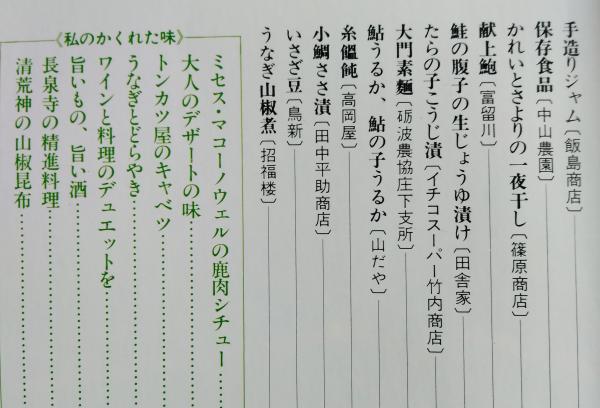 手造りジャム〔飯島商店〕
保存食品〔中山農園〕
かれいとさよりの一夜干し〔篠原商店〕
献上鮑〔富留川〕
鮭の腹子の生じょうゆ漬け〔田舎家〕
たらの子こうじ漬〔イチコスーパー竹内商店〕
大門素麺〔砺波農協庄下支所〕
鮎うるか、鮎の子うるか〔山だや〕
糸饂飩〔高岡屋〕
小鯛ささ漬〔田中平助商店〕
いさざ豆〔鳥新〕
うなぎ山椒煮〔招福楼〕
《私のかくれた味》
ミセス・マコーノウェルの鹿肉シチュー
大人のデザートの味
トンカツ屋のキャベツ
うなぎとどらやき
ワインと料理のデュエットを
旨いもの、旨い酒
長泉寺の精進料理
清荒神の山椒昆布